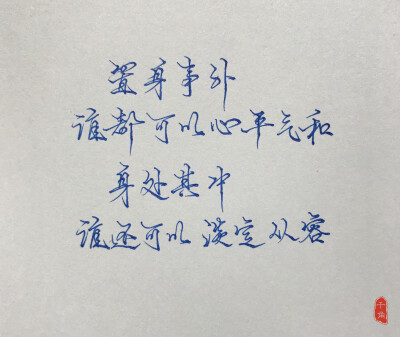 置身事外
谁都可以心平气和
身处其中
谁还可以淡定从容